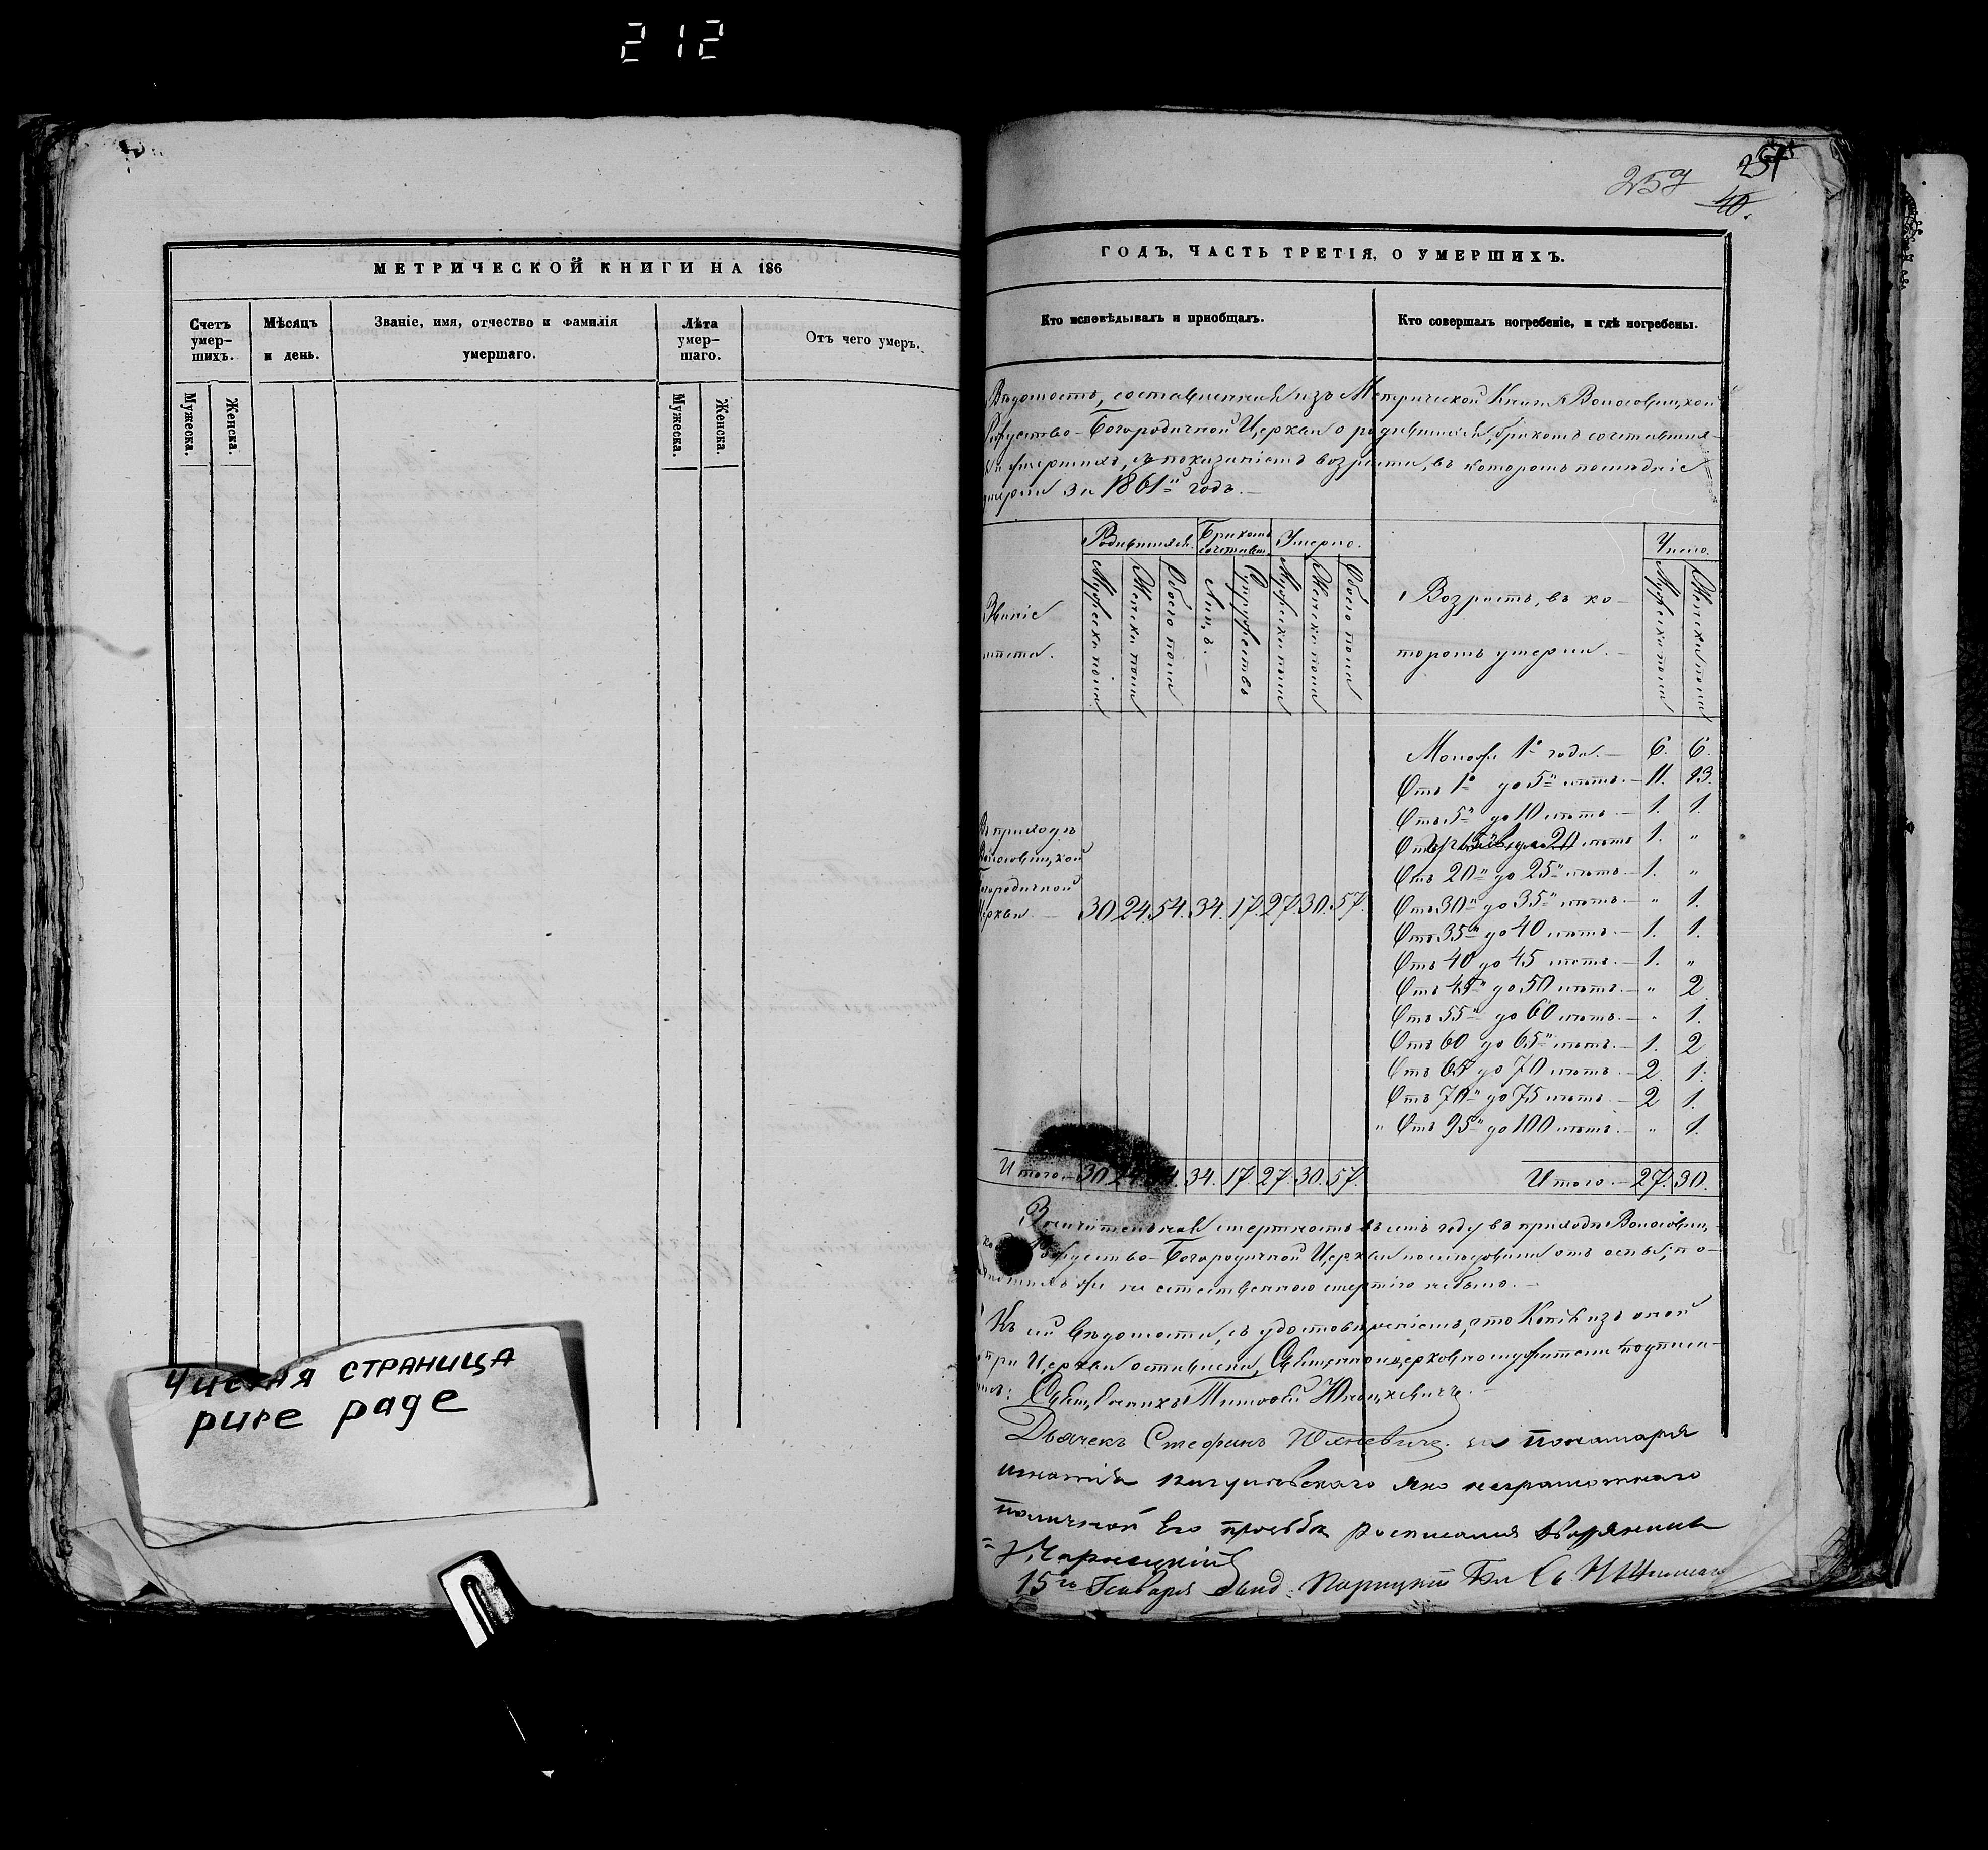 212
МЕТРИЧЕСКОЙ КНИГИ НА 186
Счетъ умер-шихъ.
Мужеска.
Женска.
Мѣсяцъ и день.
Званіе, имя, отчество и фамилія
умершаго.
Лѣта умер-шаго.
Мужеска.
Женска.
Отъ чего умеръ.
Чистая страница
pure page
257
257
40.
ГОДЪ, ЧАСТЬ ТРЕТІЯ, О УМЕРШИХЪ.
Кто исповѣдывалъ и пріобщалъ.
Кто совершалъ погребеніе, и гдѣ погребены.
Вѣдомость, составленная изъ Метрической Книги
Рождество-Богородичной Церкви о родившихся, бракомъ сочетавших-
ся и умершихъ, съ показаніемъ возраста, въ которомъ послѣдніе
умерли за 1861й годъ. —
Званіе
мѣста.
Родившихся.
Мужеска пола
Женска пола
Обоего пола
Бракомъ сочетавш.
Лицъ. —
Супружествъ
Умерло.
Мужеска пола
Женска пола
Обоего пола
Возрастъ, въ ко-
торомъ умерли. —
Число.
Мужеска пола
Женска пола
Въ приходѣ
Богородичной
Церкви. — 30 24. 54. 34. 17. 27. 30. 57.
Моложе 1го года. — 6. 6.
Отъ 1го до 5и лѣтъ. — 11. 13.
Отъ 5и до 10 лѣтъ. — 1. 1.
Отъ до 20 лѣтъ 1. "
Отъ 20и до 25и лѣтъ. — 1. "
Отъ 30и до 35и лѣтъ. — " 1.
Отъ 35и до 40 лѣтъ. — 1. 1.
Отъ 40 до 45 лѣтъ. — 1. "
Отъ 45и до 50 лѣтъ. — " 2
Отъ 55и до 60 лѣтъ. — " 1.
Отъ 60 до 65и лѣтъ. — 1. 2
Отъ 65 до 70 лѣтъ. — 2. 1.
Отъ 70и до 75 лѣтъ. — 2 1.
" Отъ 95и до 100 лѣтъ. — " 1.
Итого. — 30 24. 54. 34. 17. 27. 30. 57.
Итого. — 27. 30.
смертность въ семъ году въ приходѣ
Рождество-Богородичной Церкви послѣдовала отъ оспы, по-
не естественною смертію не было. —
Къ сей вѣдомости, съ удостовѣреніемъ, что Копія изъ оной
при Церкви оставлена, Священноцерковнослужители подписа-
лись: Священникъ
Дьячекъ Стефанъ Юхневичъ. за пономаря
Игнатія яко неграмотнаго
по личной Его просьбѣ росписался Дворянинъ
15го Генваря